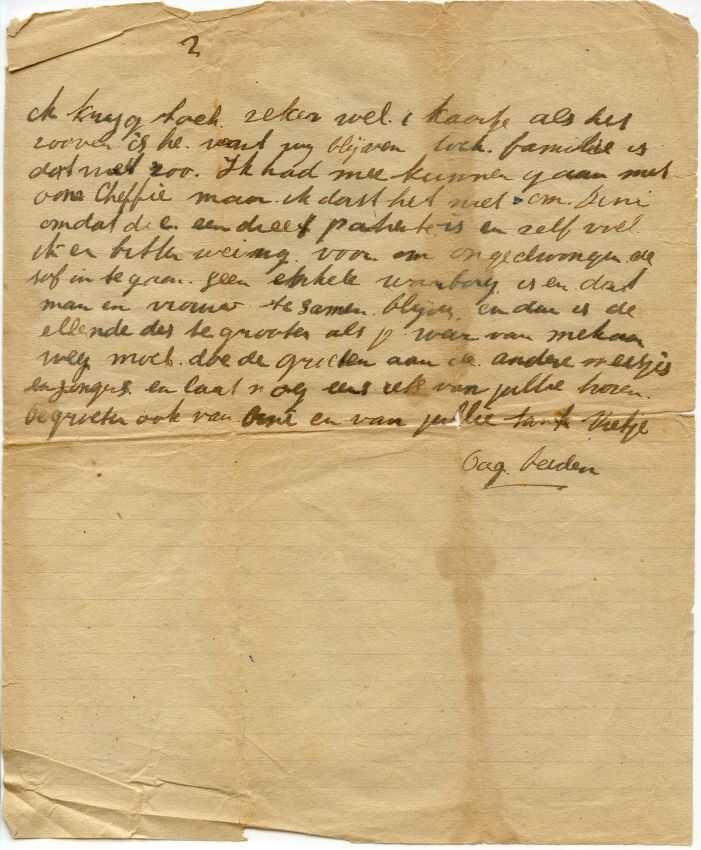 2
ik kryg toch zeker wel 1 kaartje als het
zoover is he. want wy blijven toch familie is
dat niet zoo. Ik had mee kunnen gaan met
onze Cheffie maar ik dast het niet om Dini
omdat die een patient is en zelf voel
ik er bitter weinig voor om ongedwongen de
sof in te gaan. geen enkele waarborg is en dat
man en vrouw te samen blijven, en dan is de
ellende des te grooter als je weer van mekaar
weg moet. doe de groeten aan de andere meisjes
en jongens en laat nog eens iets van jullie horen.
de groeten ook van Dini en van jullie tante Rietje
Dag. beiden